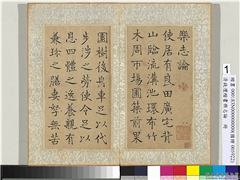 樂志論
使居有良田廣宅背
山臨流溝池環帀竹
木周布場圃築前果
園樹後舟車足以代
步涉之勞使令足以
息四體之役養親有
兼珍之膳妻孥無苦
1